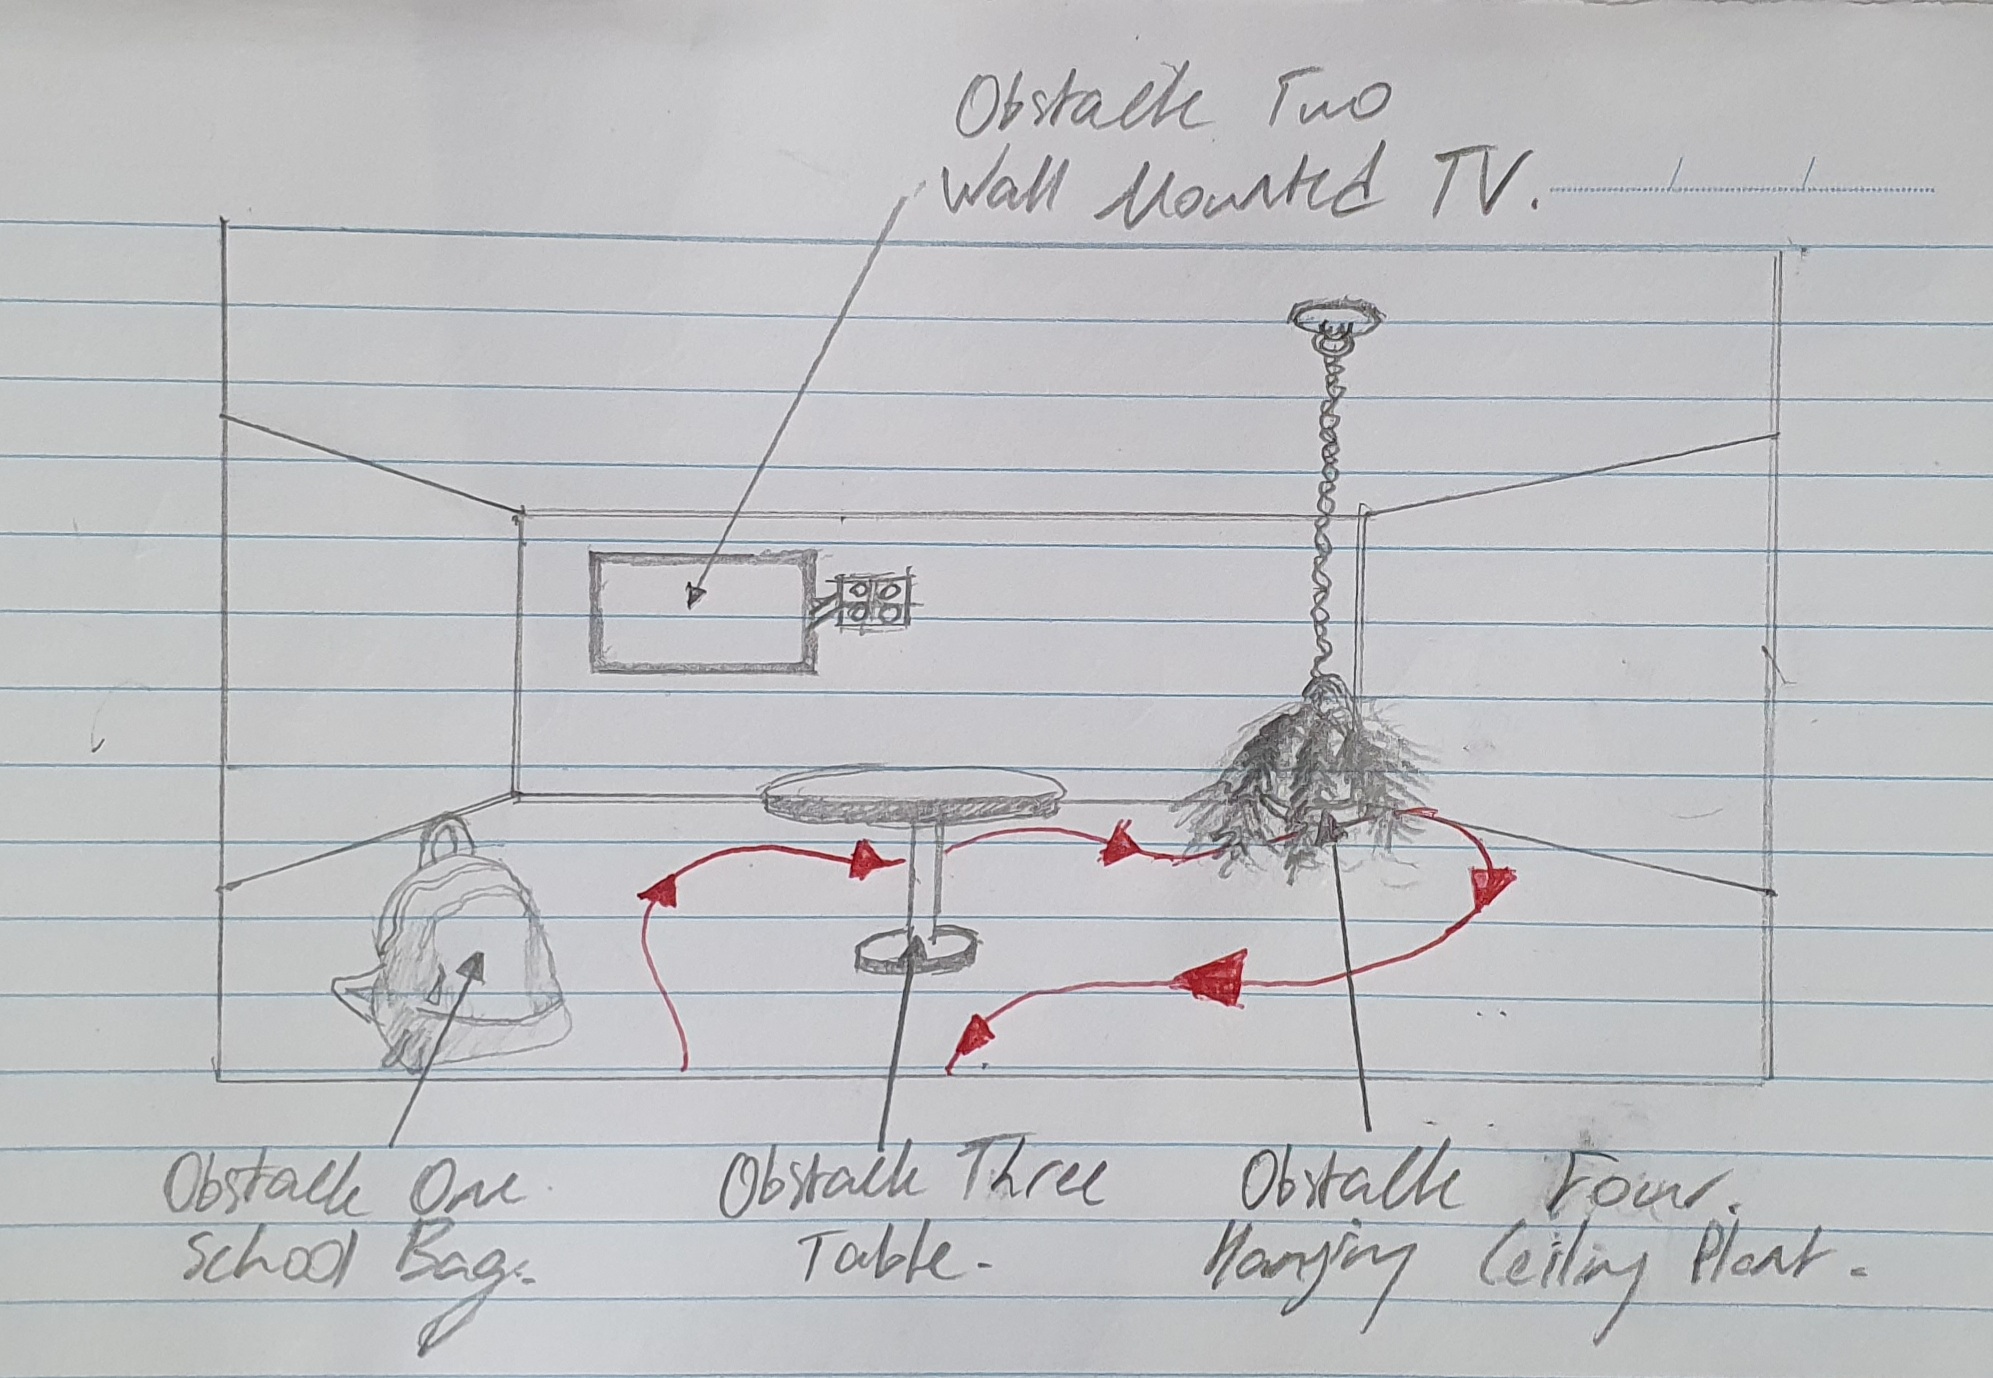 Obstacle Two
Wall Mounted TV.
Obstacle One.
School Bag.
Obstacle Three
Table.
Obstacle Four.
Hanging Ceiling Plant.